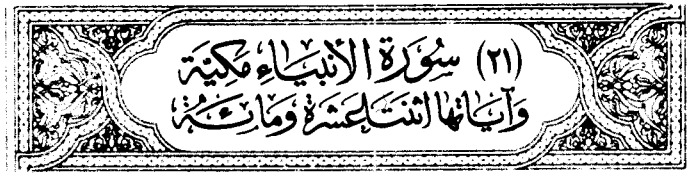 (٢١) سُورَة الأنبيَاءِ مَكيَّة
وَآيَاتها اثنتَا عَشرَة وَمائة